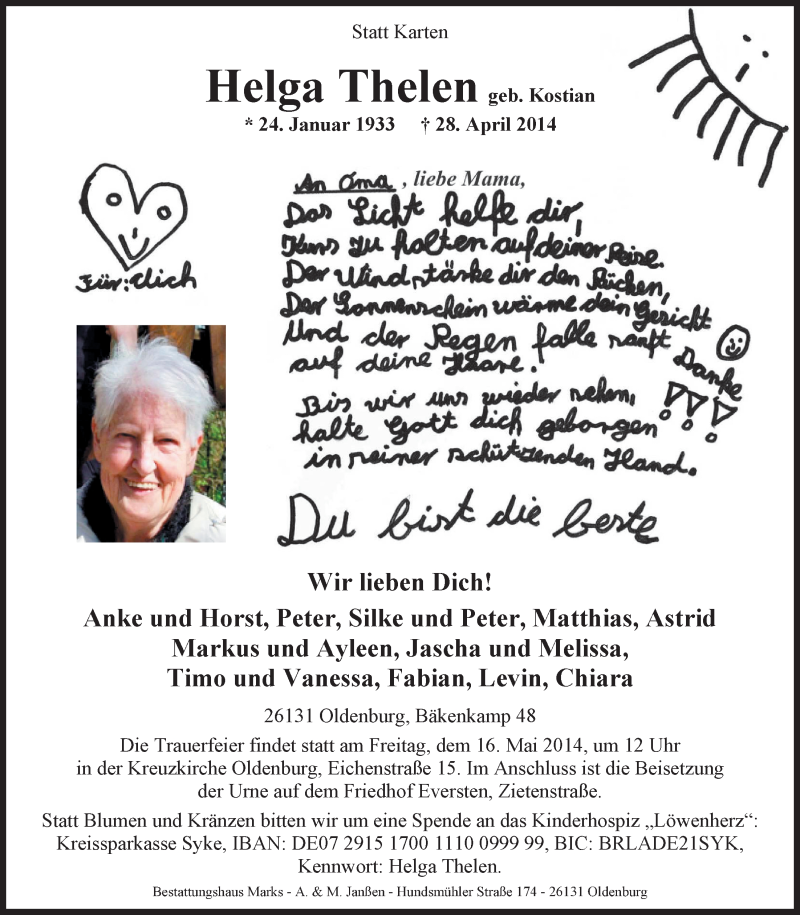 Statt Karten
Helga Thelen geb. Kostian
* 24. Januar 1933 † 28. April 2014
An Oma, liebe Mama,
Das Licht helfe dir,
Kurs zu halten auf deiner Reise.
Der Wind stärke dir den Rücken,
Der Sonnenschein wärme dein Gesicht
Und der Regen falle sanft
auf deine Haare!
Danke !!!
Bis wir uns wieder sehen,
halte Gott dich geborgen
in seiner schützenden Hand.
Du bist die beste
Für: dich
Wir lieben Dich!
Anke und Horst, Peter, Silke und Peter, Matthias, Astrid
Markus und Ayleen, Jascha und Melissa,
Timo und Vanessa, Fabian, Levin, Chiara
26131 Oldenburg, Bäkenkamp 48
Die Trauerfeier findet statt am Freitag, dem 16. Mai 2014, um 12 Uhr
in der Kreuzkirche Oldenburg, Eichenstraße 15. Im Anschluss ist die Beisetzung
der Urne auf dem Friedhof Eversten, Zietenstraße.
Statt Blumen und Kränzen bitten wir um eine Spende an das Kinderhospiz „Löwenherz“:
Kreissparkasse Syke, IBAN: DE07 2915 1700 1110 0999 99, BIC: BRLADE21SYK,
Kennwort: Helga Thelen.
Bestattungshaus Marks - A. & M. Janßen - Hundsmühler Straße 174 - 26131 Oldenburg